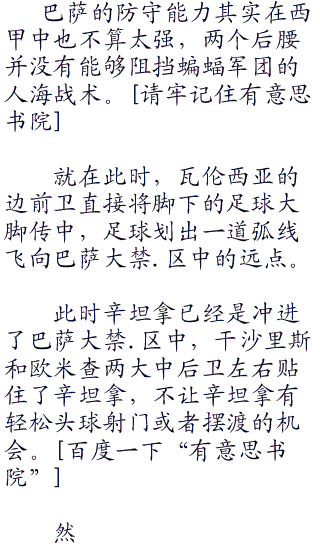 巴萨的防守能力其实在西
甲中也不算太强，两个后腰
并没有能够阻挡蝙蝠军团的
人海战术。[请牢记住有意思
书院]
就在此时，瓦伦西亚的
边前卫直接将脚下的足球大
脚传中，足球划出一道弧线
飞向巴萨大禁.区中的远点。
此时辛坦拿已经是冲进
了巴萨大禁.区中，干沙里斯
和欧米查两大中后卫左右贴
住了辛坦拿，不让辛坦拿有
轻松头球射门或者摆渡的机
会。[百度一下“有意思书
院”]
然